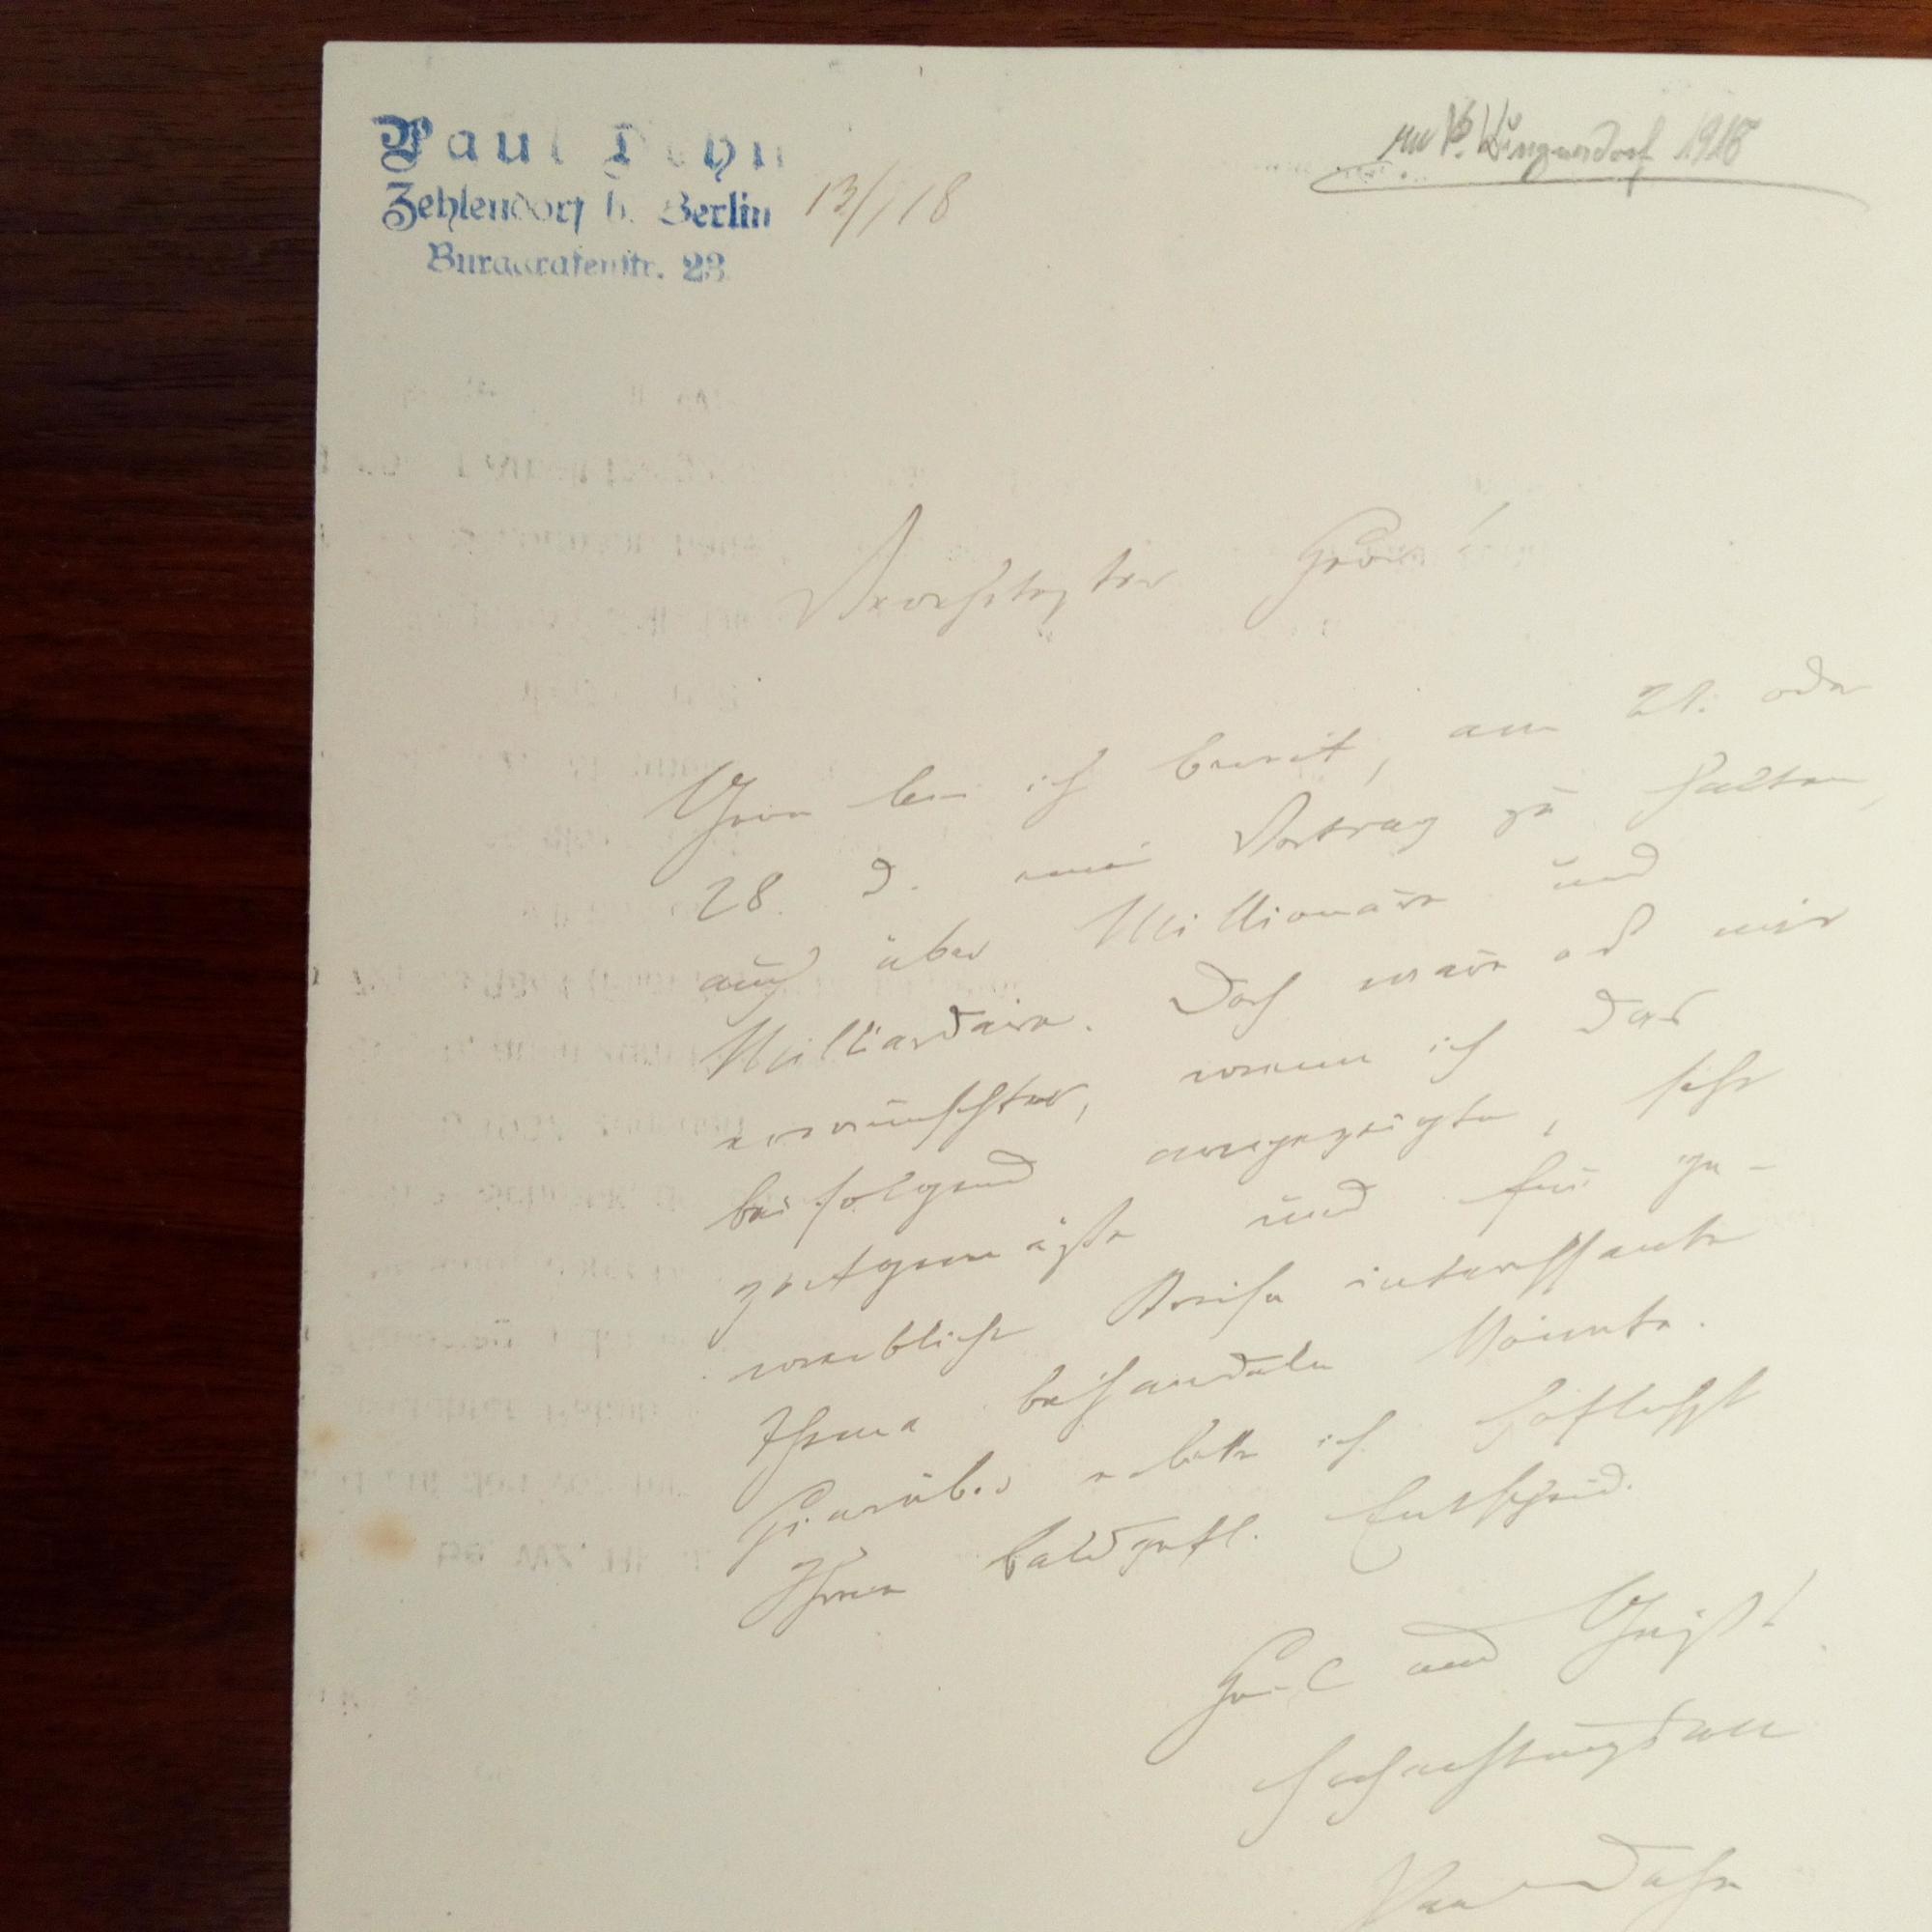 Paul Dehn
Zehlendorf b. Berlin
Burggrafenstr. 23
13/1 18
1918
Verehrtester Herr!
Gern bin ich bereit, am 21. oder
28. d. einen Vortrag zu halten,
auch über Millionäre und
Milliardäre. Doch wäre es mir
erwünschter, wenn ich das
beifolgend angezeigte, sehr
zeitgemäße und für ge-
werbliche Kreise interessante
Thema behandeln könnte.
Hierüber erbitte ich höflichst
Ihren baldgefl. Entscheid.
Heil und Gruß!
Hochachtungsvoll
Paul Dehn